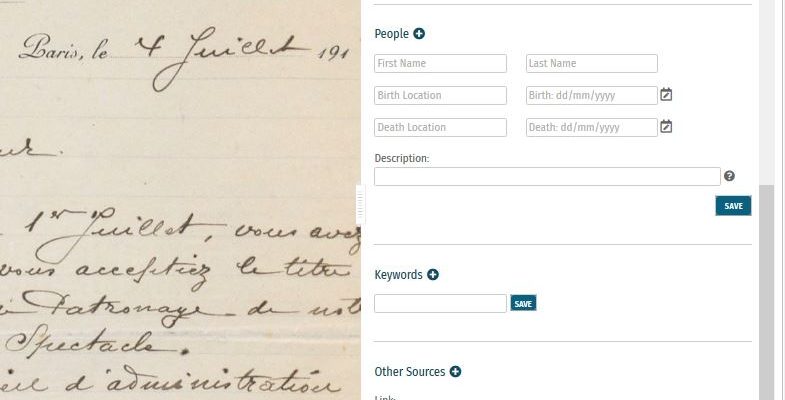 Paris, le 4 Juillet 191
ur.
1er Juillet, vous avez
vous acceptiez le titre
Patronage de not
Spectacle.
eil d'administration
People
First Name
Last Name
Birth Location
Birth: dd/mm/yyyy
Death Location
Death: dd/mm/yyyy
Description:
SAVE
Keywords
SAVE
Other Sources
Link: